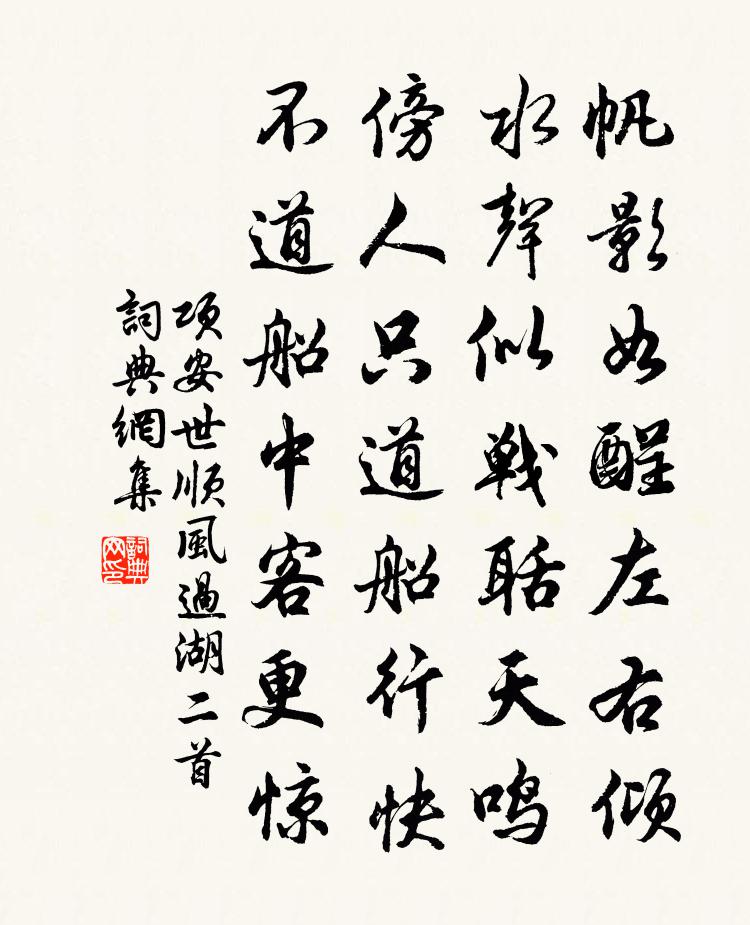 帆影如醒左右倾
水聲似戦聒天鸣
傍人只道船行快
不道船中客更惊
项安世顺風過湖二首
詞典網集
詞典网印